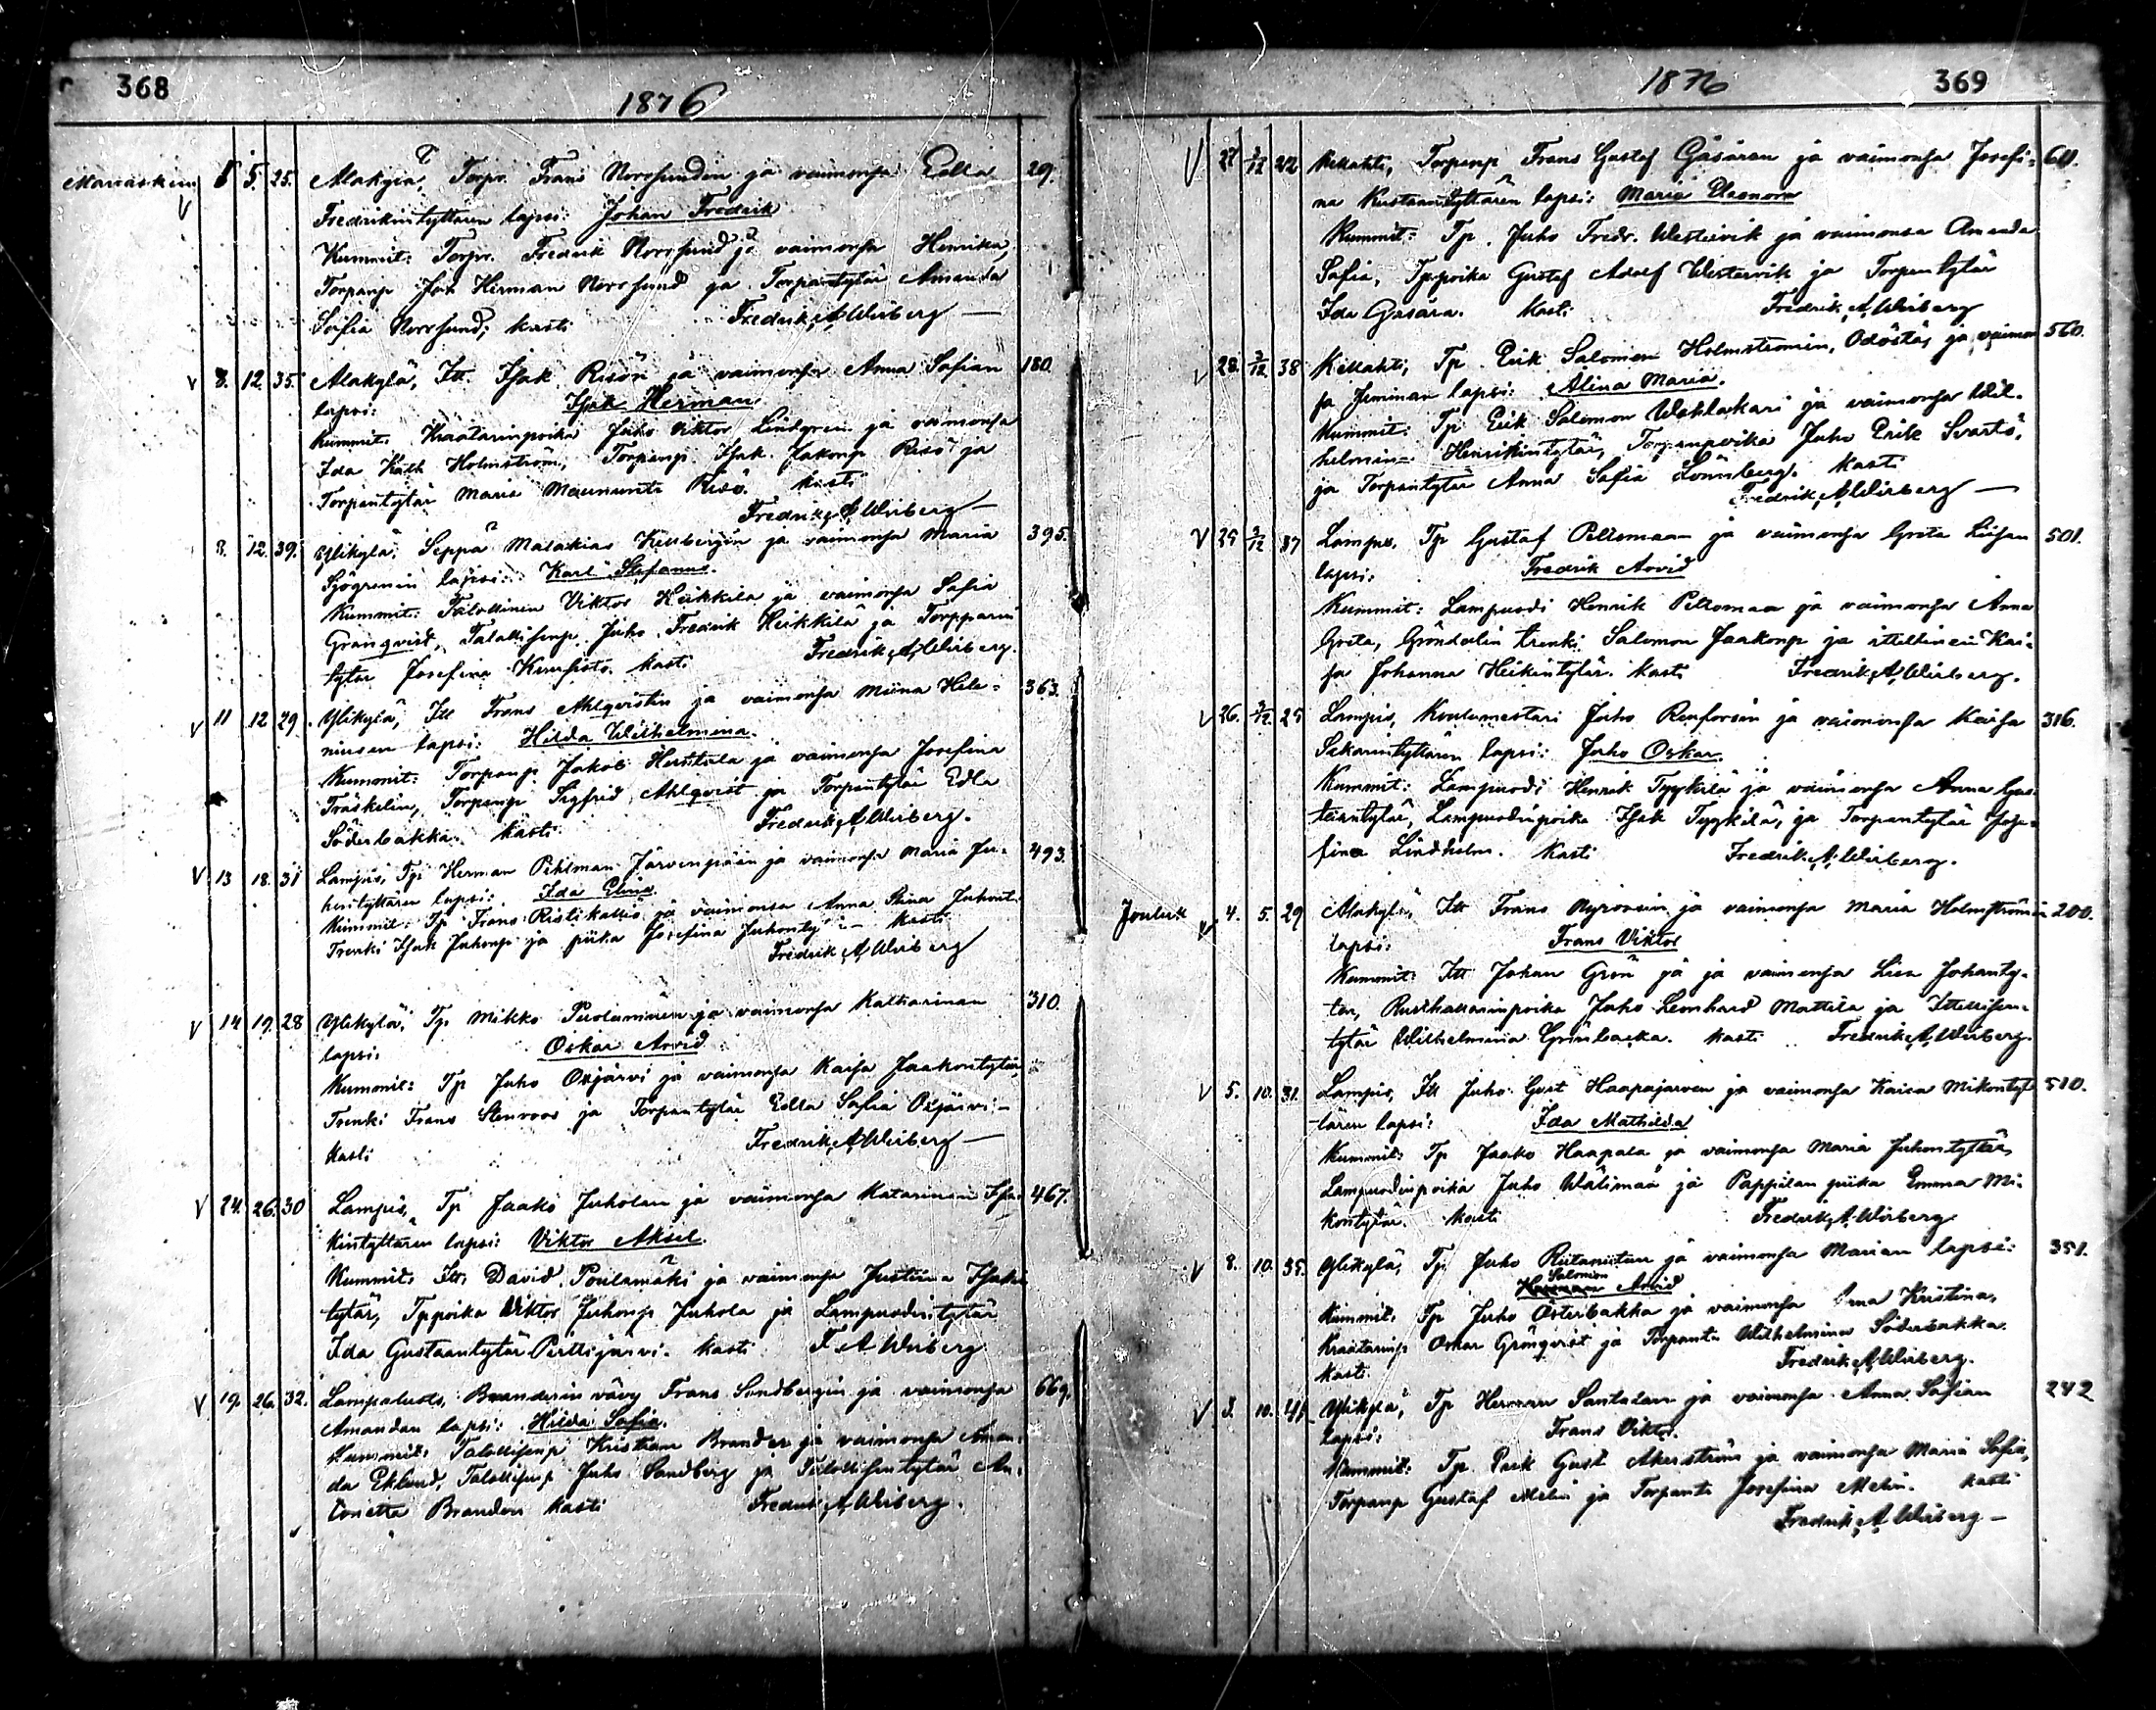 368
1876
Marraskuu 5 5. 25. Alakylä, Torpr. Frans Norrsundin ja vaimonsa Edla 29.
Fredrikintyttären lapsi: Johan Fredrik
Kummit: Torpr. Fredrik Norrsund ja vaimonsa Henrika,
Torpanp Joh Herman Norrsund ja Torpantytär Amanda
Sofia Norrsund; kasti Fredrik A Wirberg —
V 8. 12. 35. Alakylä, Itt. Isak Risön ja vaimonsa Anna Sofian 180.
lapsi: Isak Herman
Kummit: Kraatarinpoika Juho Viktor Lindgren ja vaimonsa
Ida Kath Holmström, Torpanp. Isak Jakonp Risö ja
Torpantytär Maria Risö. kasti
Fredrik A Wirberg —
8. 12. 39. Ylikylä, Seppä Malakias Kullbergin ja vaimonsa Maria 395.
Sjögrenin lapsi: Karl Stefanus.
Kummit: Talollinen Viktor Heikkilä ja vaimonsa Sofia
Granqvist, Talollisenp. Juho Fredrik Heikkilä ja Torpparin
tytär Josefina kasti Fredrik A Wirberg.
V 11 12 29. Ylikylä, Itt Frans Ahlqvistin ja vaimonsa Miina Hele- 363.
niusen lapsi: Hilda Wilhelmina.
Kummit: Torpanp. Jakob ja vaimonsa Josefina
Träskelin, Torpanp Sigfrid Ahlqvist ja Torpantytär Edla
Söderbakka. kasti Fredrik A Wirberg.
V 13 18. 31 Lampis, Tp. Herman Pihlman Järvenpään ja vaimonsa Maria Ju- 493.
hontyttären lapsi: Ida Elina.
Kummit: Tp Frans Ristikallio ja vaimonsa Anna Stina Juhont.
Trenki Isak Juhonp ja piika Josefina Juhonty kasti
Fredrik A Wirberg
V 14 19. 28 Ylikylä, Tp Mikko ja vaimonsa Katharinan 310.
lapsi: Oskar Arvid
Kummit: Tp Juho Oxjärvi ja vaimonsa Kaisa Jaakontytär,
Trenki Frans Stenroos ja Torpantytär Edla Sofia Oxjärvi —
kasti Fredrik A Wirberg —
V 24. 26. 30 Lampis, Tp Jaako Juholan ja vaimonsa Katarinan Isa- 467.
kintyttären lapsi: Viktor Aksel.
Kummit: Itt. David Poulamäki ja vaimonsa Justiina Isakin
tytär, Tppoika Viktor Juhonp Juhola ja Lampuodintytär
Ida Gustaantytär Pirttijärvi. kasti F A Wirberg
V 19. 26. 32. Lampaluoto, Branderin vävy Frans Sandbergin ja vaimonsa 669.
Amandan lapsi: Hilda Sofia.
Kummit: Talollisenp Kristian Brander ja vaimonsa Aman-
da Eklund, Talollisenp Juho Sandberg ja Talollisentytär An-
tonetta Brander kasti Fredrik A Wirberg.
1876 369
V 27 3/12 22 Kellahti, Torpanp Frans Gustaf Gåsåran ja vaimonsa Josefi- 611.
na Kustaantyttären lapsi: Maria Eleonora
Kummit: Tp. Juho Fredr. Westervik ja vaimonsa Amanda
Sofia, Tppoika Gustaf Adolf Westervik ja Torpantytär
Ida Gåsåra. Kasti Fredrik A Wirberg
V 28. 3/12 38 Kellahti, Tp Erik Salomon Holmströmin, Odöstä, ja vaimon 560.
sa lapsi: Alina Maria.
Kummit: Tp Erik Salomon ja vaimonsa Wil-
helmina Henrikintytär, Torpanpoika Juho Erik Svartö,
ja Torpantytär Anna Sofia Lönnberg. Kasti
Fredrik A Wirberg —
V 25 3/12 37 Lampis, Tp Gustaf Peltomaan ja vaimonsa Greta Liisan 501.
lapsi: Fredrik Arvid
Kummit: Lampuodi Henrik Peltomaa ja vaimonsa Anna
Greta, trenki Salomon Jaakonp ja itellinen Kai-
sa Johanna Heikintytär. kasti Fredrik A Wirberg.
V 26. 3/12 25 Lampis, Koulumestari Juho Renforsin ja vaimonsa Kaisa 316.
Sakarintyttären lapsi: Juho Oskar.
Kummit: Lampuodi Henrik Tyykilä ja vaimonsa Anna Gus-
taantytär, Lampuodinpoika Isak Tyykilä, ja Torpantytär Jose-
fina Lindholm. Kasti Fredrik A Wirberg.
Jouluk V 4. 5. 29 Alakylä, Itt Frans Nyroosin ja vaimonsa Maria Holmströmin 200.
lapsi: Frans Viktor
Kummit: Itt Johan Grön ja ja vaimonsa Lisa Johanty-
tär, Rusthallarinpoika Juho Leonhard Mattila ja Itellisen-
tytär Wilhelmina Grönbacka. kasti Fredrik A Wirberg.
V 5. 10. 31. Lampis, Itt Juho Gust Haapajärven ja vaimonsa Kaisa Mikontyt- 510.
tären lapsi: Ida Mathilda
Kummit: Tp Jaako Haapala ja vaimonsa Maria Juhontytär,
Lampuodinpoika Juho Wälimaa ja Pappilan piika Emma Mi-
kontytär. kasti Fredrik A Wirberg
V 8. 10. 35. Ylikylä, Tp Juho ja vaimonsa Marian lapsi: 351.
Salomon
Arvid
Kummit: Tp Juho Österbakka ja vaimonsa Anna Kristina,
Kraatarinp Oskar Grönqvist ja Torpantr Wilhelmina Söderbakka.
kasti Fredrik A Wirberg.
V 8. 10. 41 Ylikylä, Tp Herman Santalan ja vaimonsa Anna Sofian 242
lapsi: Frans Viktor.
Kummit: Tp. Erik Gust Åkerström ja vaimonsa Maria Sofia,
Torpanp Gustaf Melin ja Torpantr Josefina Melin. kasti
Fredrik A Wirberg —